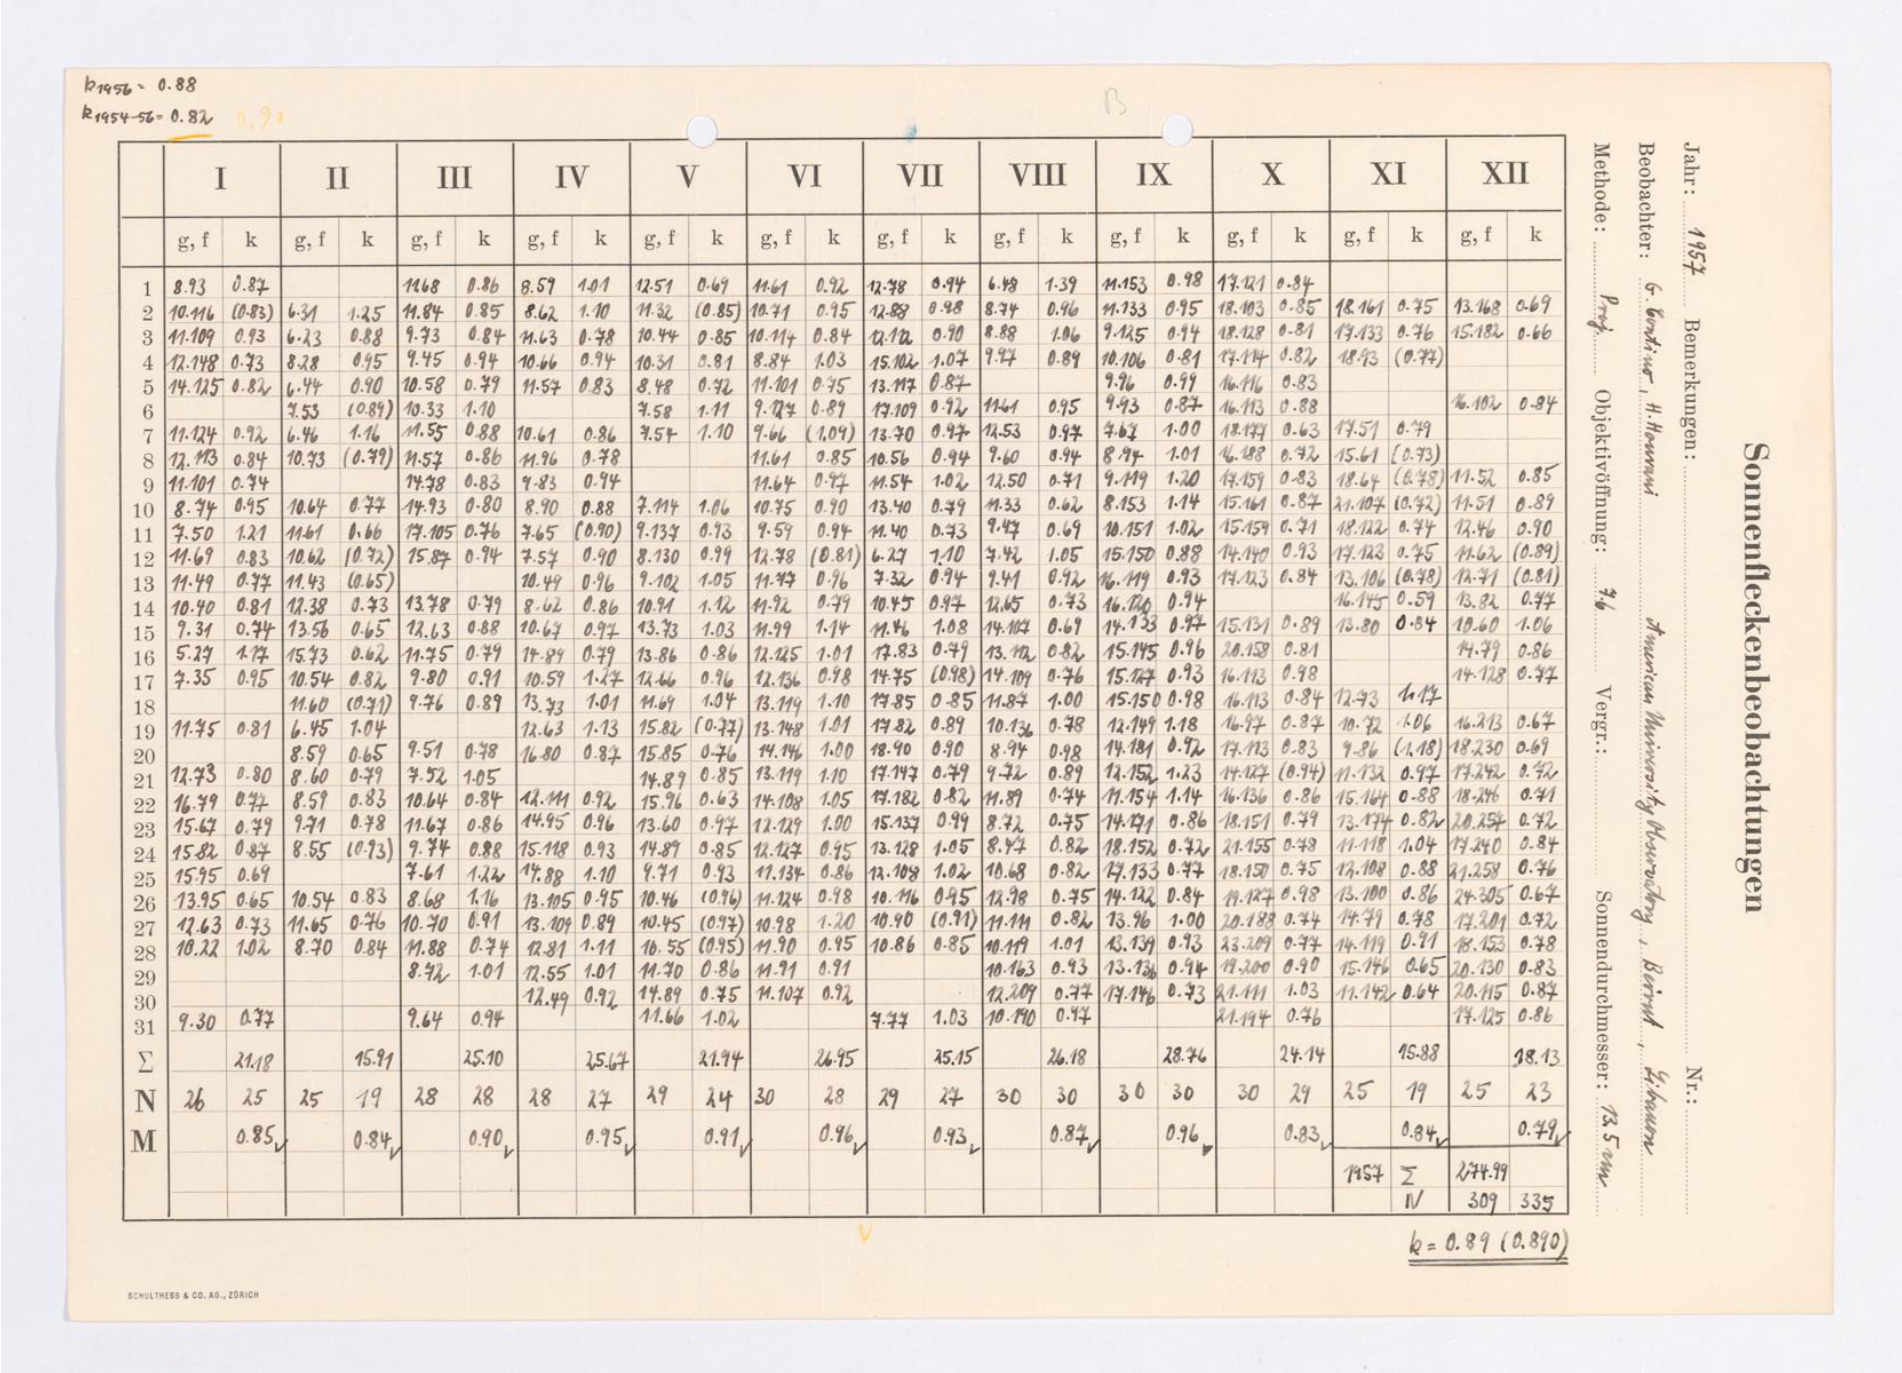 k1956 = 0.88
k1954-56 = 0.82 0.90
B
I II III IV V VI VII VIII IX X XI XII
g, f k g, f k g, f k g, f k g, f k g, f k g, f k g, f k g, f k g, f k g, f k g, f k
1 8.93 0.87 11.68 0.86 8.59 1.01 12.51 0.69 11.61 0.92 12.78 0.94 6.48 1.39 11.153 0.98 17.121 0.84
2 10.116 (0.83) 6.31 1.25 11.84 0.85 8.62 1.10 11.32 (0.85) 10.71 0.95 12.88 0.98 8.74 0.96 11.133 0.95 18.103 0.85 18.161 0.75 13.168 0.69
3 11.109 0.93 6.23 0.88 9.73 0.84 11.63 0.78 10.44 0.85 10.114 0.84 12.112 0.90 8.88 1.06 9.125 0.94 18.128 0.81 17.133 0.76 15.182 0.66
4 12.148 0.73 8.28 0.95 9.45 0.94 10.66 0.94 10.31 0.81 8.84 1.03 15.102 1.07 9.97 0.89 10.106 0.81 17.114 0.82 18.93 (0.77)
5 14.125 0.82 6.44 0.90 10.58 0.79 11.57 0.83 8.48 0.72 11.101 0.75 13.117 0.87 9.96 0.99 16.116 0.83
6 7.53 (0.89) 10.33 1.10 7.58 1.11 9.127 0.89 17.109 0.92 11.61 0.95 9.93 0.87 16.113 0.88 16.102 0.84
7 11.124 0.92 6.46 1.16 11.55 0.88 10.61 0.86 7.54 1.10 9.66 (1.09) 13.70 0.97 12.53 0.97 7.67 1.00 18.177 0.63 17.51 0.79
8 12.113 0.84 10.73 (0.79) 11.57 0.86 11.96 0.78 11.61 0.85 10.56 0.94 9.60 0.94 8.94 1.01 16.188 0.72 15.61 (0.73)
9 11.101 0.74 14.78 0.83 9.83 0.94 11.64 0.97 11.54 1.02 12.50 0.71 9.119 1.20 17.159 0.83 18.64 (0.78) 11.52 0.85
10 8.74 0.95 10.64 0.77 14.93 0.80 8.90 0.88 7.114 1.06 10.75 0.90 13.40 0.79 11.33 0.62 8.153 1.14 15.161 0.87 21.107 (0.72) 11.51 0.89
11 7.50 1.21 11.61 0.66 17.105 0.76 7.65 (0.90) 9.137 0.93 9.59 0.94 11.40 0.73 9.47 0.69 10.151 1.02 15.159 0.71 18.122 0.74 12.46 0.90
12 11.69 0.83 10.62 (0.72) 15.87 0.94 7.57 0.90 8.130 0.99 12.78 (0.81) 6.27 1.10 7.42 1.05 15.150 0.88 14.140 0.93 17.123 0.75 11.62 (0.89)
13 11.49 0.77 11.43 (0.65) 10.49 0.96 9.102 1.05 11.77 0.96 7.32 0.94 9.41 0.92 16.119 0.93 17.123 0.84 13.106 (0.78) 12.71 (0.81)
14 10.40 0.81 12.38 0.73 13.78 0.79 8.62 0.86 10.91 1.12 11.92 0.79 10.45 0.97 12.65 0.73 16.120 0.94 16.145 0.59 13.82 0.77
15 9.31 0.74 13.56 0.65 12.63 0.88 10.67 0.97 13.73 1.03 11.99 1.14 11.46 1.08 14.107 0.69 14.133 0.97 15.131 0.89 13.80 0.84 10.60 1.06
16 5.27 1.17 15.73 0.62 11.75 0.79 14.89 0.79 13.86 0.86 12.125 1.01 17.83 0.79 13.112 0.82 15.145 0.96 20.158 0.81 14.79 0.86
17 7.35 0.95 10.54 0.82 9.80 0.91 10.59 1.27 12.66 0.96 12.136 0.98 14.75 (0.98) 14.109 0.76 15.127 0.93 16.113 0.98 14.128 0.77
18 11.60 (0.71) 9.76 0.89 13.73 1.01 11.69 1.04 13.119 1.10 17.85 0.85 11.87 1.00 15.150 0.98 16.113 0.84 12.73 1.17
19 11.75 0.81 6.45 1.04 12.63 1.13 15.82 (0.77) 13.148 1.01 17.82 0.89 10.136 0.78 12.149 1.18 16.97 0.87 10.72 1.06 16.213 0.67
20 8.59 0.65 9.51 0.78 16.80 0.87 15.85 0.76 14.146 1.00 18.90 0.90 8.94 0.98 14.181 0.92 17.113 0.83 9.86 (1.18) 18.230 0.69
21 12.73 0.80 8.60 0.79 7.52 1.05 14.89 0.85 13.119 1.10 17.147 0.79 9.72 0.89 12.152 1.23 14.127 (0.94) 11.132 0.97 17.242 0.72
22 16.79 0.77 8.59 0.83 10.64 0.84 12.111 0.92 15.96 0.63 14.108 1.05 17.182 0.82 11.89 0.74 11.154 1.14 16.136 0.86 15.164 0.88 18.246 0.71
23 15.67 0.79 9.71 0.78 11.67 0.86 14.95 0.96 13.60 0.97 12.129 1.00 15.137 0.99 8.72 0.75 14.171 0.86 18.151 0.79 13.174 0.82 20.254 0.72
24 15.82 0.87 8.55 (0.93) 9.74 0.88 15.118 0.93 14.89 0.85 12.127 0.95 13.128 1.05 8.47 0.82 18.152 0.72 21.155 0.78 11.118 1.04 17.240 0.84
25 15.95 0.69 7.61 1.22 14.88 1.10 9.71 0.93 11.134 0.86 12.108 1.02 10.68 0.82 17.133 0.77 18.150 0.75 12.108 0.88 21.258 0.76
26 13.95 0.65 10.54 0.83 8.68 1.16 13.105 0.95 10.46 (0.96) 11.124 0.98 10.116 0.95 12.98 0.75 14.122 0.84 19.127 0.98 13.100 0.86 24.305 0.67
27 12.63 0.73 11.65 0.76 10.70 0.91 13.109 0.89 10.45 (0.97) 10.98 1.20 10.90 (0.91) 11.111 0.82 13.96 1.00 20.188 0.74 14.79 0.78 17.201 0.72
28 10.22 1.02 8.70 0.84 11.88 0.74 12.81 1.11 10.55 (0.95) 11.90 0.95 10.86 0.85 10.119 1.01 13.139 0.93 23.209 0.77 14.119 0.91 18.153 0.78
29 8.72 1.01 12.55 1.01 11.70 0.86 11.91 0.91 10.163 0.93 13.136 0.94 19.200 0.90 15.146 0.65 20.130 0.83
30 12.49 0.92 14.89 0.75 11.107 0.92 12.209 0.77 17.146 0.73 21.111 1.03 11.142 0.64 20.115 0.87
31 9.30 0.77 9.64 0.94 11.66 1.02 7.77 1.03 10.190 0.97 21.194 0.76 17.125 0.86
Σ 21.18 15.91 25.10 25.67 21.94 26.95 25.15 26.18 28.76 24.14 15.88 18.13
N 26 25 25 19 28 28 28 27 29 24 30 28 29 27 30 30 30 30 30 29 25 19 25 23
M 0.85 0.84 0.90 0.95 0.91 0.96 0.93 0.87 0.96 0.83 0.84 0.79
1957 Σ 274.99
N 309 335
k = 0.89 (0.890)
SCHULTHESS & CO. AG., ZÜRICH
Sonnenfleckenbeobachtungen
Jahr: 1957 Bemerkungen: Nr.:
Beobachter: G. Contino, H. Hourani American University Observatory, Beirut, Libanon
Methode: Proj. Objektivöffnung: 7.6 Vergr.: Sonnendurchmesser: 13.5 cm